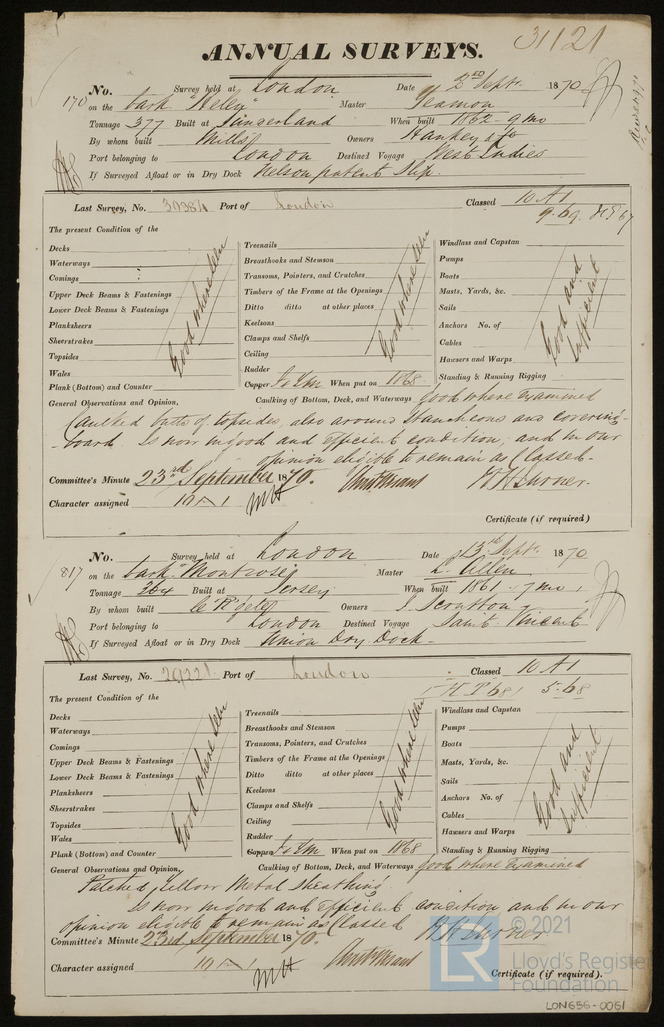 31121
ANNUAL SURVEYS.
170 No. Survey held at London Date 2nd Septr. 1870
on the bark "Heley" Master Yeamon
Tonnage 377 Built at Sunderland When built 1862-9mo
By whom built Mills Owners Hankey & Co
Port belonging to London Destined Voyage West Indies
If Surveyed Afloat or in Dry Dock Nelson patent Slip.
Last Survey, No. Port of London Classed 10 A1
9.69.
The present Condition of the
Decks Treenails Windlass and Capstan
Waterways Breasthooks and Stemson Pumps
Comings Transoms, Pointers, and Crutches Boats
Upper Deck Beams & Fastenings Timbers of the Frame at the Openings Masts, Yards, &c.
Lower Deck Beams & Fastenings Ditto ditto at other places Sails
Planksheers Keelsons Anchors No. of
Sheerstrakes Clamps and Shelfs Cables
Topsides Ceiling Hawsers and Warps
Wales Rudder Standing & Running Rigging
Good where seen Good where seen Good and Sufficient
Plank (Bottom) and Counter Copper When put on 1868
General Observations and Opinion, Caulking of Bottom, Deck, and Waterways Good where Examined
Caulked butts of topsides, also around Stancheons and covering-
-board. Is now in good and efficient condition, and in our
opinion eligible to remain as Classed.
Committee's Minute 23rd September 1870.
Character assigned 10 A 1
Certificate (if required)
817 No. Survey held at London Date 13th Septr. 1870
on the bark "Montrose" Master L. Allen
Tonnage 264 Built at Jersey When built 1861-7mo
By whom built Owners J. Scrutton
Port belonging to London Destined Voyage Saint Vincent
If Surveyed Afloat or in Dry Dock Union Dry Dock
Last Survey, No. 29221 Port of London Classed 10 A1
5.68
The present Condition of the
Decks Treenails Windlass and Capstan
Waterways Breasthooks and Stemson Pumps
Comings Transoms, Pointers, and Crutches Boats
Upper Deck Beams & Fastenings Timbers of the Frame at the Openings Masts, Yards, &c.
Lower Deck Beams & Fastenings Ditto ditto at other places Sails
Planksheers Keelsons Anchors No. of
Sheerstrakes Clamps and Shelfs Cables
Topsides Ceiling Hawsers and Warps
Wales Rudder Standing & Running Rigging
Good where seen Good where seen Good and Sufficient
Plank (Bottom) and Counter Copper When put on 1868
General Observations and Opinion, Caulking of Bottom, Deck, and Waterways Good where Examined
Patched Yellow Metal Sheathing
Is now in good and efficient condition and in our
opinion eligible to remain as Classed
Committee's Minute 23rd September 1870.
Character assigned 10 A 1
Certificate (if required).
© 2021
LR Lloyd's Register
Foundation
LON656-0051